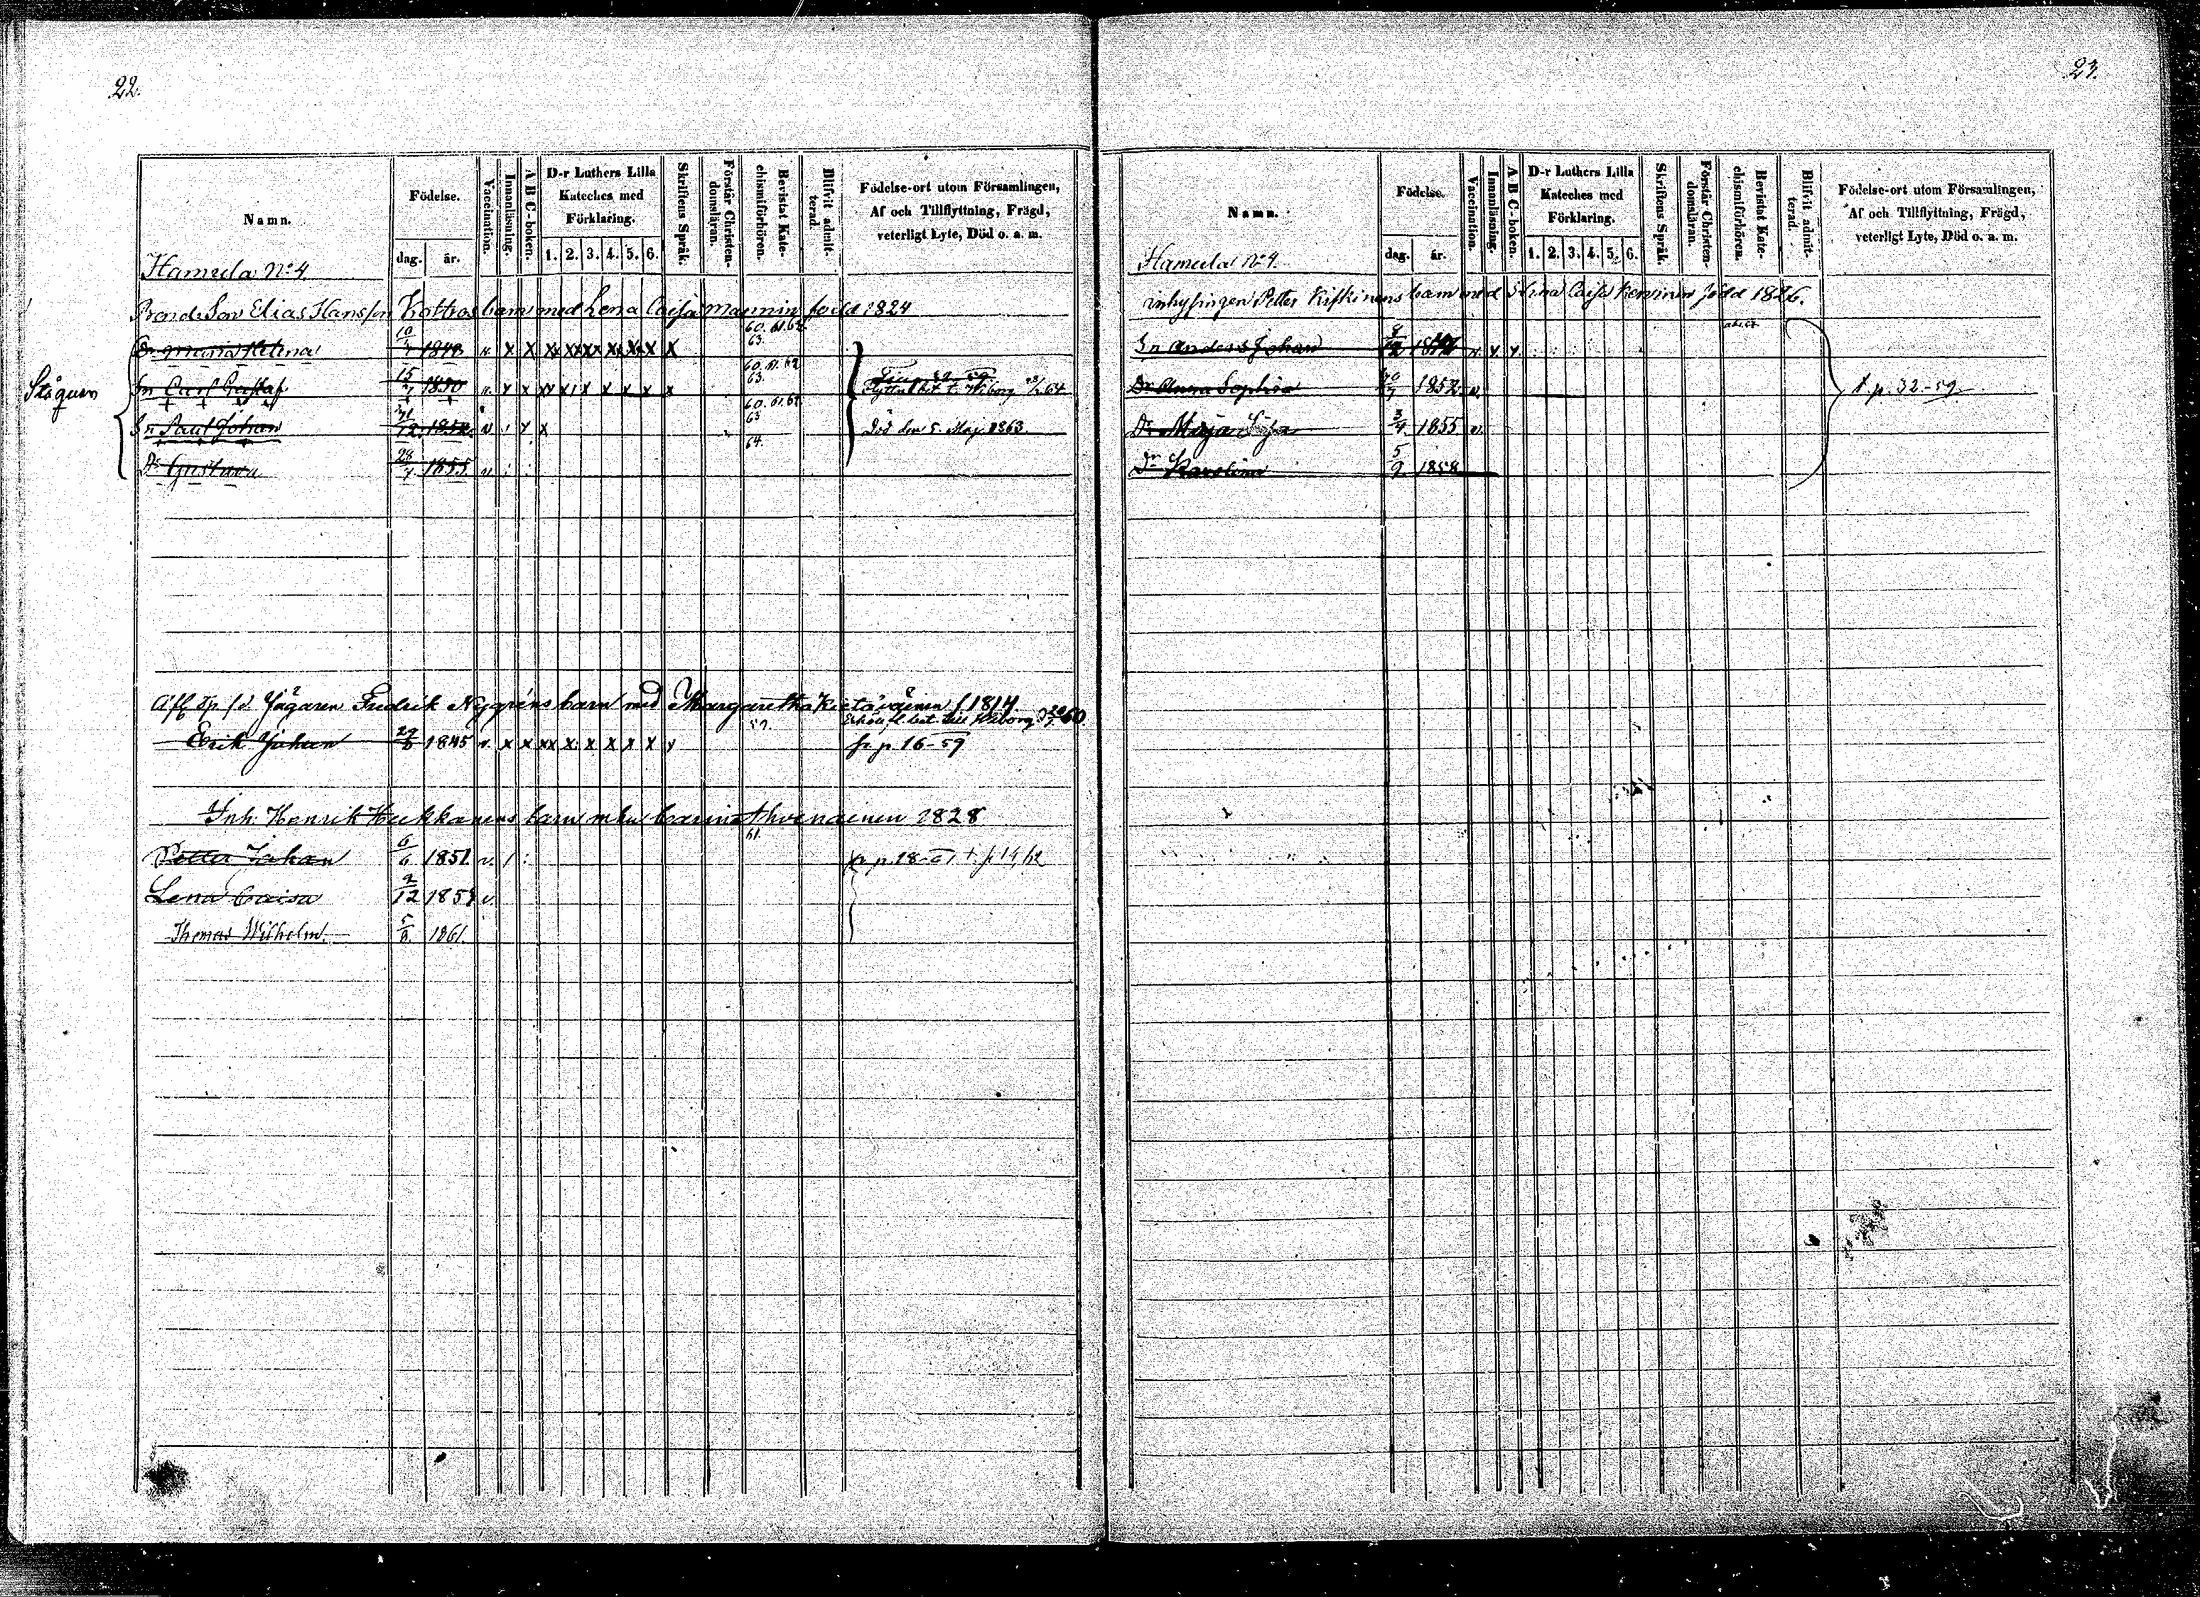 22.
Namn.
Födelse.
dag.
år.
Vaccination.
Innanläsning.
A B C-boken.
D-r Luthers Lilla Kateches med Förklaring.
1. 2. 3. 4. 5. 6.
Skriftens Språk.
Förstår Christendomsläran.
Bevistat Katechismiförhören.
Blifvit admitterad.
Födelse-ort utom Församlingen,
Af och Tillflyttning, Frägd,
veterligt Lyte, Död o. a. m.
Hamula No 4
Bonde Son Elias Hansson Kottros barn med Lena Caisa Mannin född 1824
Dr Maria Helena 10/7 1848 v. x x xx xx xx x xx x x 60. 61. 62 63.
Sn Carl Gustaf 15/7 1850 v. x x xx x x x x x x 60. 61. 62 63. flyttat bet. t. Wiborg 64
Sn Paul Johan 12 1852 v x x 60. 61. 62 63 Död den 5. Maj 1863.
Dr Gustava 28/7 1855 v 64.
Aff. Sp. f.d. Jägaren Fredrik Nygréns barn med Margaretha f. 1814
Erik Johan 27 1845 v. x x xx x x x x x x 59. fr p. 16-59
Inh. Henrik Hukkanens barn m hu Carin Ihvenainen 1828
Petter Johan 6/6 1851 v. 61. fr p. 18-61 t. p 14, 62
Lena Caisa 2/12 1858 v.
Thomas Wilhelm. 5/8 1861.
23.
Namn.
Födelse.
dag.
år.
Vaccination.
Innanläsning.
A B C-boken.
D-r Luthers Lilla Kateches med Förklaring.
1. 2. 3. 4. 5. 6.
Skriftens Språk.
Förstår Christendomsläran.
Bevistat Katechismiförhören.
Blifvit admitterad.
Födelse-ort utom Församlingen,
Af och Tillflyttning, Frägd,
veterligt Lyte, Död o. a. m.
Hamula No 4.
inhysingen Petter Kiskinens barn med Stina Caisa född 1826.
Sn Anders Johan v. x x
Dr Anna Sophia 1852 v. t p. 32-59
Dr Maja 3/4 1855 v.
Dr Karolina 5/9 1858